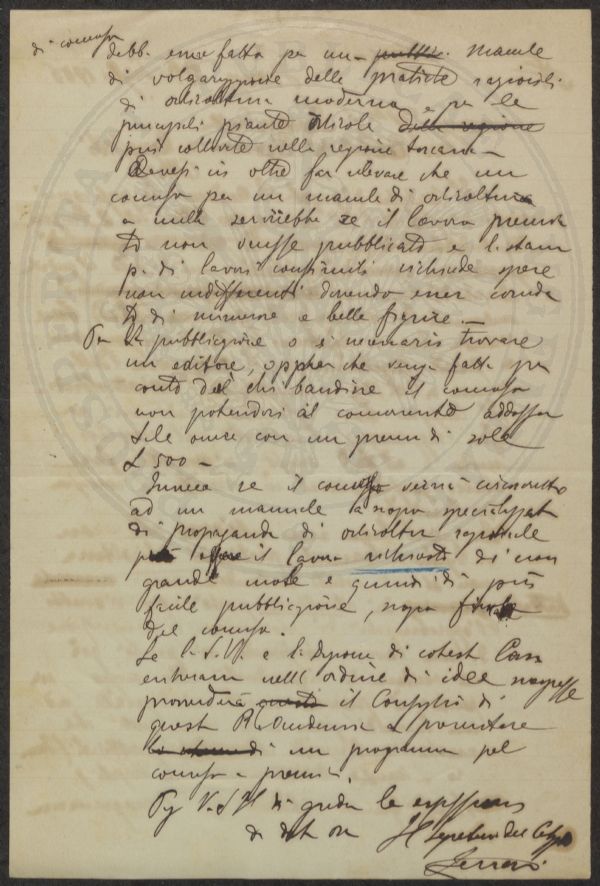 di concorso
debb. esser fatta per un pubblic. manuale
di volgarizzazione delle pratiche razionali
di orticoltura moderna e per le
principali piante orticole della regione
più coltivate nella regione toscana -
Devesi in oltre far rilevare che un
concorso per un manuale di orticoltura
a nulla servirebbe se il lavoro premia
to non venisse pubblicato e la stam
pa di lavori consimili richiede spese
non indifferenti dovendo esser correda
to di numerose e belle figure. -
Per la pubblicazione o è necessario trovare
un editore, oppure che venga fatta per
conto del chi bandisce il concorso
non potendosi al concorrente addossar
tale onere con un premio di sole
£ 500 -
Invece se il concorso verrà circoscritto
ad un manuale a scopo specializzato
di propaganda di orticoltura razionale
il lavoro richiesto di non
grande mole e quindi di più
facile pubblicazione, scopo finale
del concorso.
Se la S.V. e la Direzione di cotesta Cassa
entreranno nell'ordine di idee suespresse
provvederà questo il Consiglio di
questa R. Accademia a promuovere
di un programma pel
concorso a premi.
Pregg V.S.Ill di gradire le espressioni
di dist on
Il Segretario del